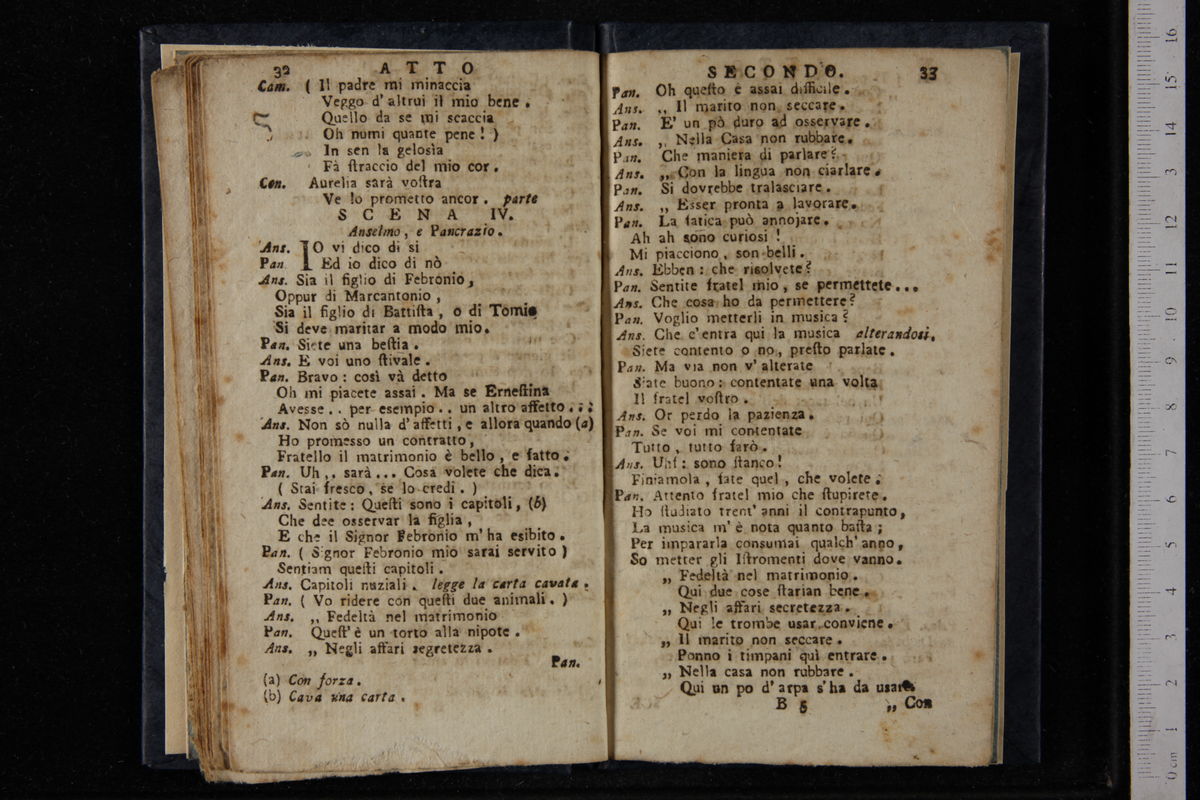 32 ATTO
Cam. ( Il padre mi minaccia
Veggo d' altrui il mio bene .
Quello da se mi scaccia
Oh numi quante pene ! )
In sen la gelosìa
Fà ſtraccio del mio cor .
Con. Aurelia sarà voſtra
Ve lo prometto ancor . parte
SCENA IV.
Anselmo , e Pancrazio .
Ans. IO vi dico di si
Pan Ed io dico di nò
Ans. Sia il figlio di Febronio ,
Oppur di Marcantonio ,
Sia il figlio di Battiſta , o di Tomio
Si deve maritar a modo mio .
Pan. Siete una beſtia .
Ans. E voi uno ſtivale .
Pan. Bravo : così và detto
Oh mi piacete assai . Ma se Erneſtina
Avesse . . per esempio . . un altro affetto . . .
Ans. Non sò nulla d' affetti , e allora quando (a)
Ho promesso un contratto ,
Fratello il matrimonio è bello , e fatto .
Pan. Uh , . sarà . . . Cosa volete che dica .
( Stai fresco , se lo credi . )
Ans. Sentite : Queſti sono i capitoli , (b)
Che dee osservar la figlia ,
E che il Signor Febronio m' ha esibito .
Pan. ( Signor Febronio mio sarai servito )
Sentiam queſti capitoli .
Ans. Capitoli nuziali . legge la carta cavata .
Pan. ( Vo ridere con queſti due animali . )
Ans. ,, Fedeltà nel matrimonio
Pan. Queſt' è un torto alla nipote .
Ans. ,, Negli affari segretezza .
Pan.
(a) Con forza .
(b) Cava una carta .
SECONDO. 33
Pan. Oh queſto è assai difficile .
Ans. ,, Il marito non seccare .
Pan. E' un pò duro ad osservare .
Ans. ,, Nella Casa non rubbare .
Pan. Che maniera di parlare ?
Ans. ,, Con la lingua non ciarlare .
Pan. Si dovrebbe tralasciare .
Ans. ,, Esser pronta a lavorare .
Pan. La fatica può annojare .
Ah ah sono curiosi !
Mi piacciono , son belli .
Ans. Ebben : che risolvete ?
Pan. Sentite fratel mio , se permettete . . .
Ans. Che cosa ho da permettere ?
Pan. Voglio metterli in musica ?
Ans. Che c' entra qui la musica alterandosi ,
Siete contento o no , preſto parlate .
Pan. Ma via non v' alterate
Siate buono : contentate una volta
Il fratel voſtro .
Ans. Or perdo la pazienza .
Pan. Se voi mi contentate
Tutto , tutto farò .
Ans. Uhf : sono ſtanco !
Finiamola , fate quel , che volete .
Pan. Attento fratel mio che ſtupirete .
Ho ſtudiato trent' anni il contrapunto ,
La musica m' è nota quanto baſta ;
Per impararla consumai qualch' anno ,
So metter gli Iſtromenti dove vanno .
,, Fedeltà nel matrimonio .
Qui due cose ſtarian bene .
,, Negli affari secretezza .
Qui le trombe usar conviene .
,, Il marito non seccare .
Ponno i timpani quì entrare .
,, Nella casa non rubbare .
Qui un po d' arpa s' ha da usare
B 5 ,, Con